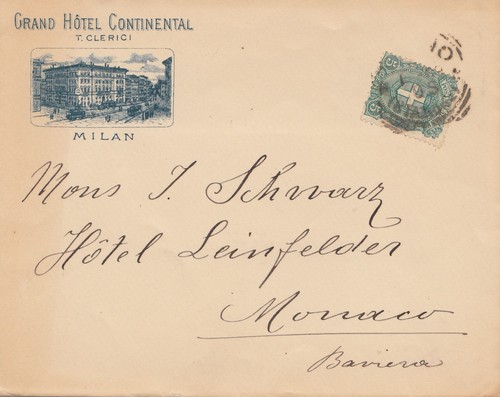 GRAND HÔTEL CONTINENTAL
T. CLERICI
MILAN
5
5
10
Mons J. Schwarz
Hôtel Leinfelder
Monaco
Baviera